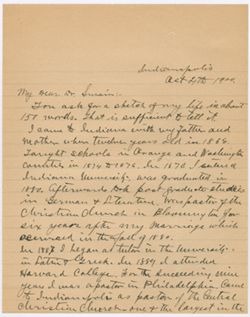 Indianapolis
Oct 27th 1900.
My Dear Dr. Swain:-
You ask for a sketch of my life in about
150 words. That is sufficient to tell it.
I came to Indiana with my father and
mother when twelve years old in 1868.
Taught schools in Orange and Washington
Counties in 1874 to 1876. In 1876 I entered
Indiana University was graduated in
1880. Afterwards took post graduate studies
in German & Literature. Was pastor of the
Christian Church in Bloomington for
six years after my marriage which
occurred in the fall of 1880.
In 1882 I began as tutor in the University
in Latin & Greek. In 1889 I attended
Harvard College. For the succeeding nine
years I was a pastor in Philadelphia. Came
to Indianapolis as pastor of the Central
Christian Church - one of the largest in the